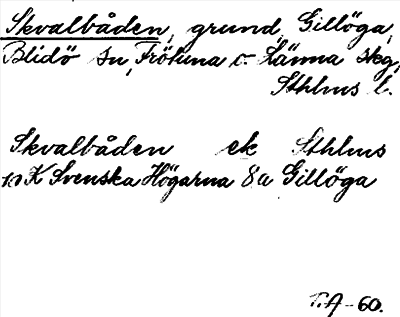 Skvalbåden, grund, Gillöga,
Blidö sn, Frötuna o. Länna skg,
Sthlms l.
Skvalbåden ek Sthlms
10 K Svenska Högarna 8a Gillöga
T.A-60.